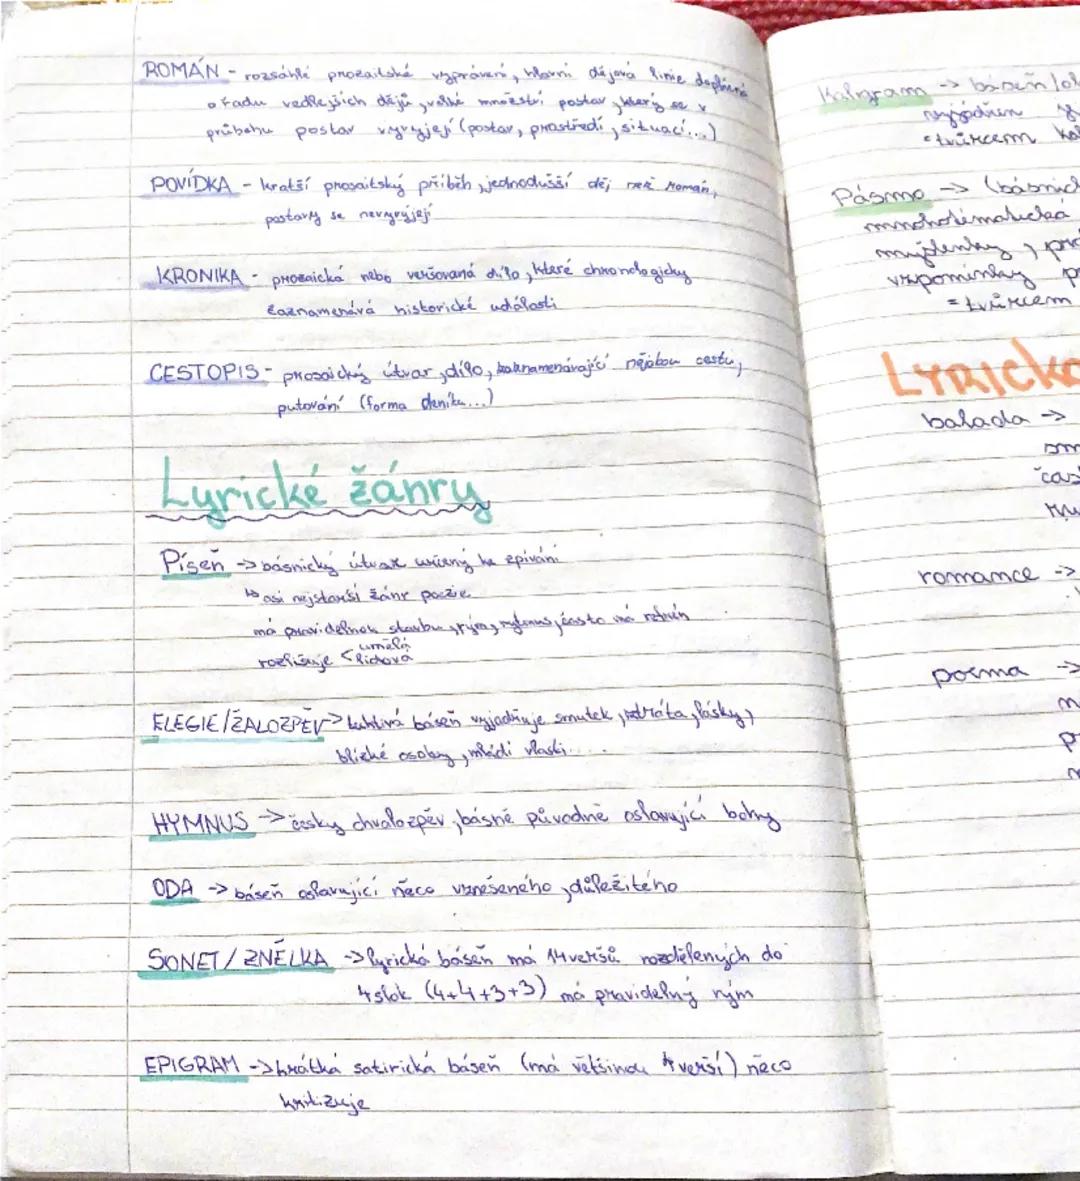 ROMÁN - rozsáhlé prozaitské vyprávění, hlavní dějová linie doplněná
o řadu vedlejších dějů, velké množství postav, který se v
průběhu postav vyvyjejí (postav, prostředí, situací...)
POVÍDKA - kratší prosaitský příběh, jednodušší děj než román,
postavy se nevyvýjejí
KRONIKA - prozaická nebo veršovaná dílo, které chronologicky
zaznamenává historické události
CESTOPIS - prosaický útvar, dílo, zaznamenávající nějakou cestu,
putování (forma deníku...)
Lyrické žánry
Píseň -> básnický útvar určený ke zpívání
↳ asi nejstarší žánr poezie
má pravidelnou stavbu, rýmy, rytmus, často má refrén
umělá
rozlišuje < lidová
ELEGIE/ŽALOZPĚV -> báseň vyjadřuje smutek, ztráta, lásky,
blízké osoby, mládí vlasti....
HYMNUS -> česky chvalozpěv, básně původně oslavující bohy
ODA -> báseň oslavující něco vznešeného, důležitého
SONET/ZNĚLKA -> lyrická báseň má 14 veršů rozdělených do
4 slok (4+4+3+3) má pravidelný rým
EPIGRAM -> krátká satirická báseň (má většinou 4 verší) něco
kritizuje
Kaligram -> báseň/ob
vyjádřen
= tvůrcem
Pásmo -> (básnick
mnohotématická
myšlenky, pro
vzpomínky p
= tvůrcem
LYRICKO
balada ->
sm
čas
romance ->
poema ->